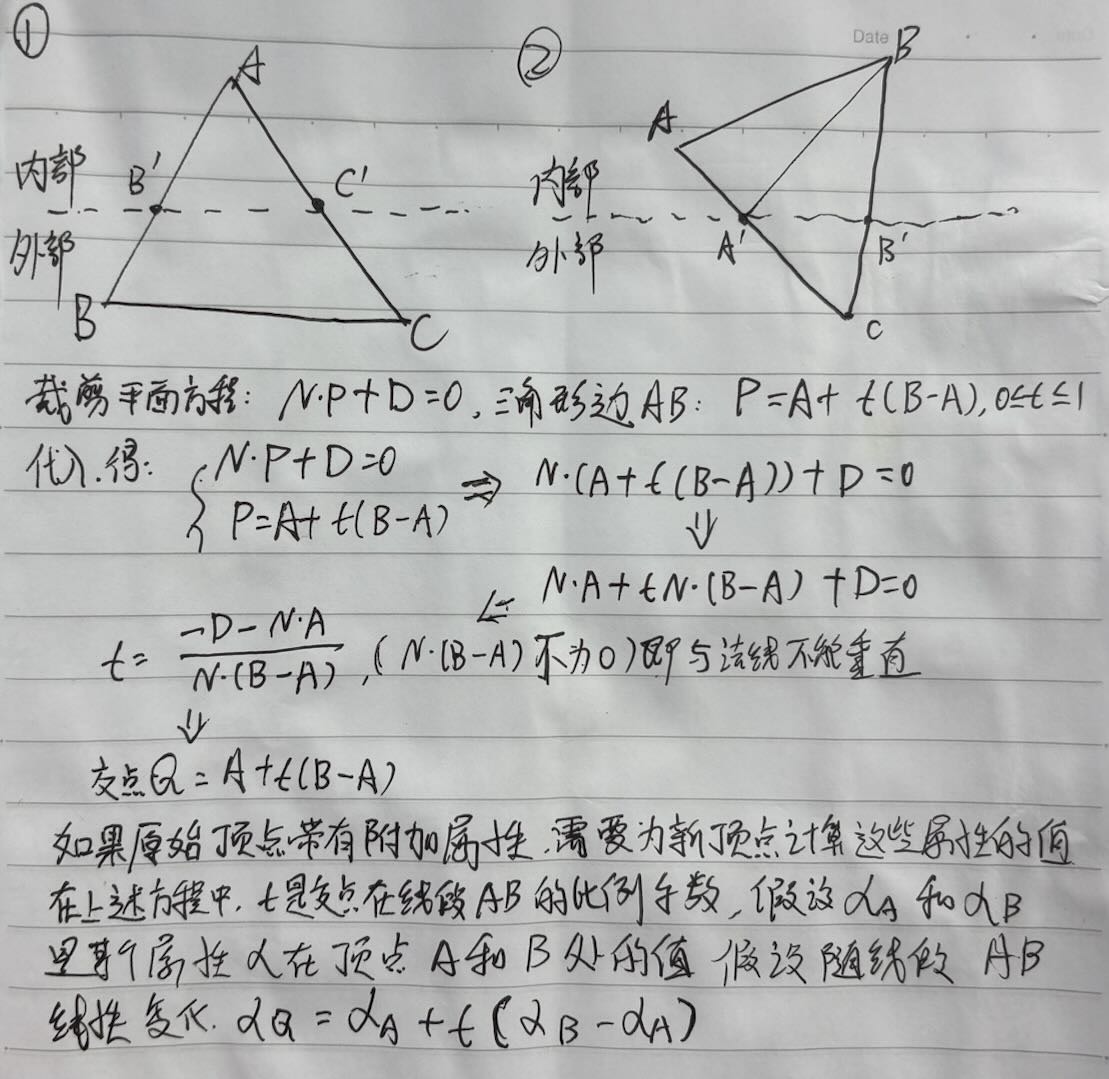 ①
②
Date
A
B
A
内部
B'
C'
内部
外部
外部
A'
B'
B
C
C
裁剪平面方程: N·P+D=0, 三角形边AB: P=A+t(B-A), 0≤t≤1
代入.得: { N·P+D=0
P=A+t(B-A) ⇒ N·(A+t(B-A))+D=0
⇓
⇐ N·A+tN·(B-A)+D=0
t= (-D-N·A)/(N·(B-A)), (N·(B-A)不为0)即与法线不能垂直
⇓
交点Q=A+t(B-A)
如果原始顶点带有附加属性.需要为新顶点计算这些属性的值
在上述方程中.t是交点在线段AB的比例分数,假设αA和αB
是某个属性α在顶点A和B处的值 假设随线段AB
线性变化.αQ=αA+t(αB-αA)